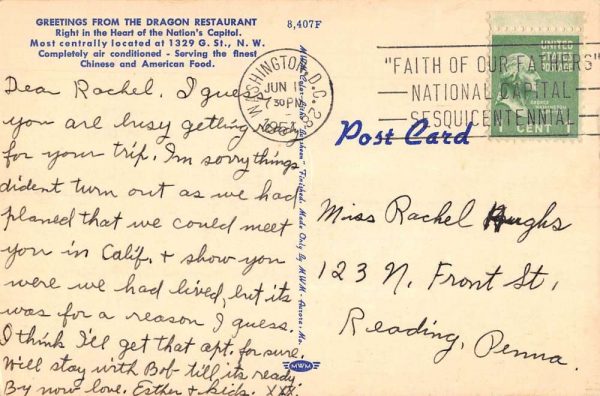 GREETINGS FROM THE DRAGON RESTAURANT
Right in the Heart of the Nation's Capitol.
Most centrally located at 1329 G. St., N. W.
Completely air conditioned - Serving the finest
Chinese and American Food.
8,407F
Dear Rachel. I guess
you are busy getting ready
for your trip. I'm sorry things
dident turn out as we had
planed that we could meet
you in Calif. & show you
were we had lived, but its
was for a reason I guess.
I think I'll get that apt. for sure.
Will stay with Bob till its ready.
By now love. Esther & kids. XXX.
WASHINGTON, D.C. 28
JUN
730PM
1951
"FAITH OF OUR FATHERS"
NATIONAL CAPITAL
SESQUICENTENNIAL
UNITED
STATES
POSTAGE
1 CENT 1
Post Card
Miss Rachel Hughs
123 N. Front St,
Reading, Penna.
Made Only By MWM - Aurora, Mo.
MWM